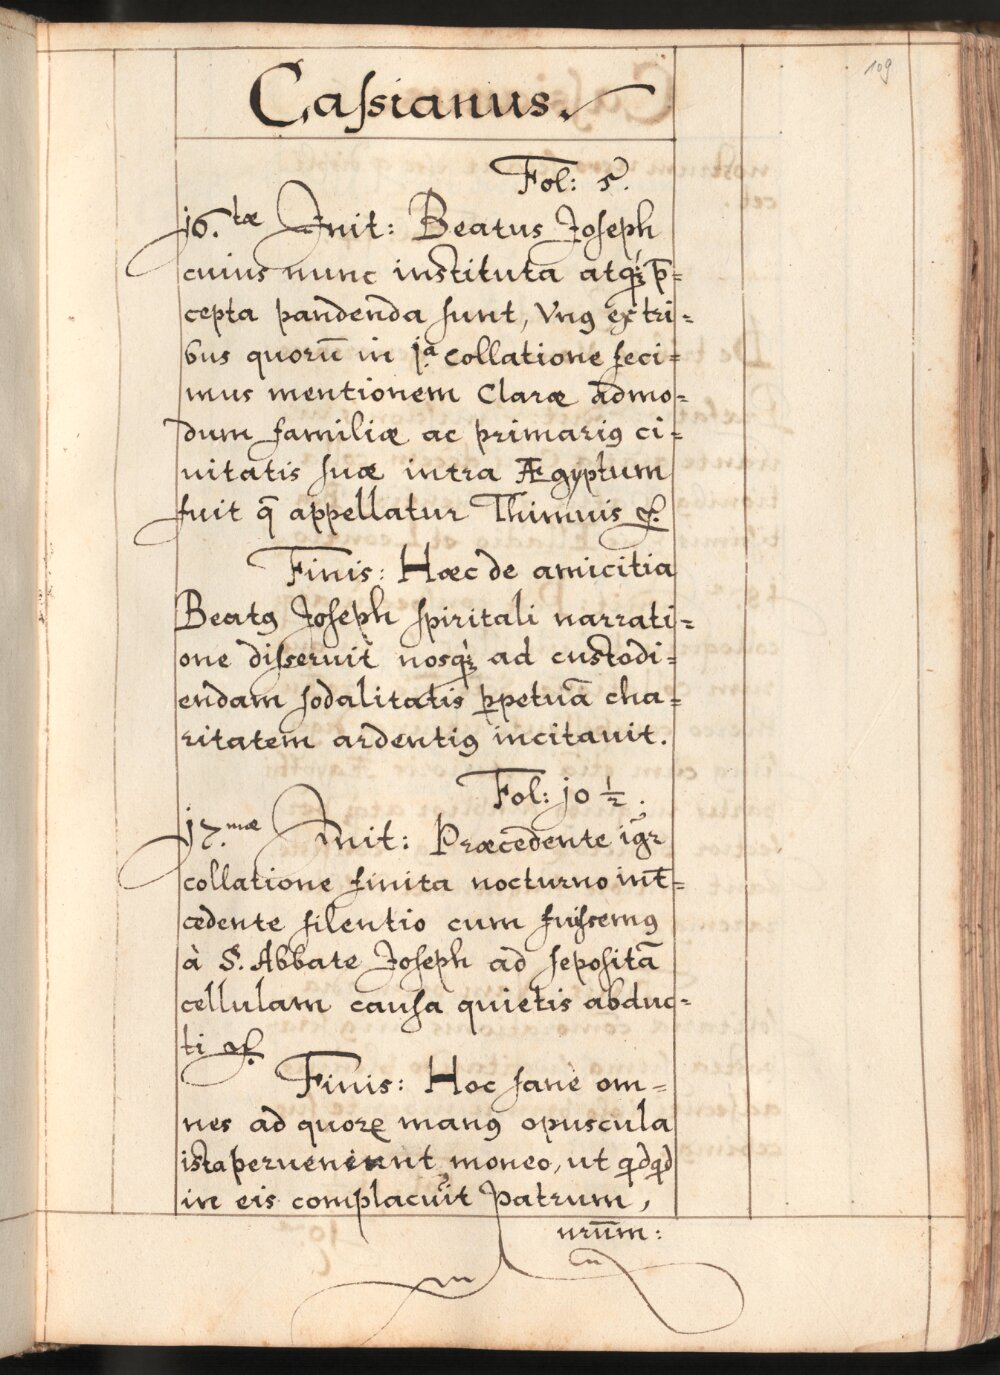 109
Caſsianus.
Fol: 5.
j6.tæ Init: Beatus Joſeph
cuius nunc instituta atqꝫ p̄=
cepta pandenda ſunt, Vnꝯ ex tri=
bus quorū in ja collatione feci=
mus mentionem Claræ admo=
dum familiæ ac primariꝯ ci=
uitatis ſuæ intra Ægyptum
fuit q̄ appellatur Thimuis &.
Finis: Hæc de amicitia
Beatꝯ Joſeph ſpiritali narrati=
one diſseruit nosqꝫ ad custodi=
endam ſodalitatis ꝑpetuā cha=
ritatem ardentiꝯ incitauit.
Fol: jo ½.
j7.mæ Init: Præcedente igr̄
collatione finita nocturno int̄=
cedente ſilentio cum fuiſsemꝯ
à S. Abbate Joſeph ad ſepoſitā
cellulam cauſa quietis abduc=
ti &.
Finis: Hoc ſanè om=
nes ad quorꝝ manꝯ opuscula
ista peruenerunt moneo, ut qdqd
in eis complacuit Patrum,
nrūm: